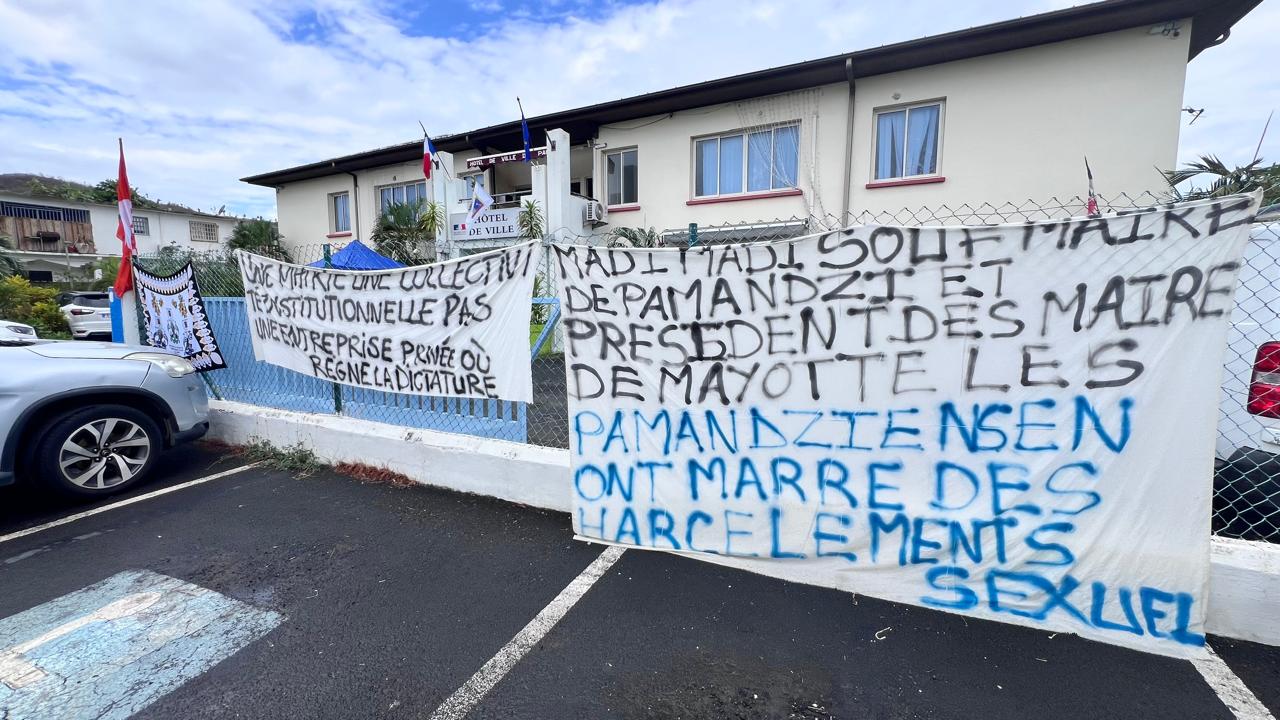 HÔTEL DE VILLE DE PA
HÔTEL
DE VILLE
UNE MAIRIE UNE COLLECTIVI
TE INSTITUTIONNELLE PAS
UNE ENTREPRISE PRIVÉE OÙ
RÉGNE LA DICTATURE
MADI MADI SOUF MAIRE
DE PAMANDZI ET
PRESIDENT DES MAIRE
DE MAYOTTE LES
PAMANDZIENS EN
ONT MARRE DES
HARCELEMENTS
SEXUEL